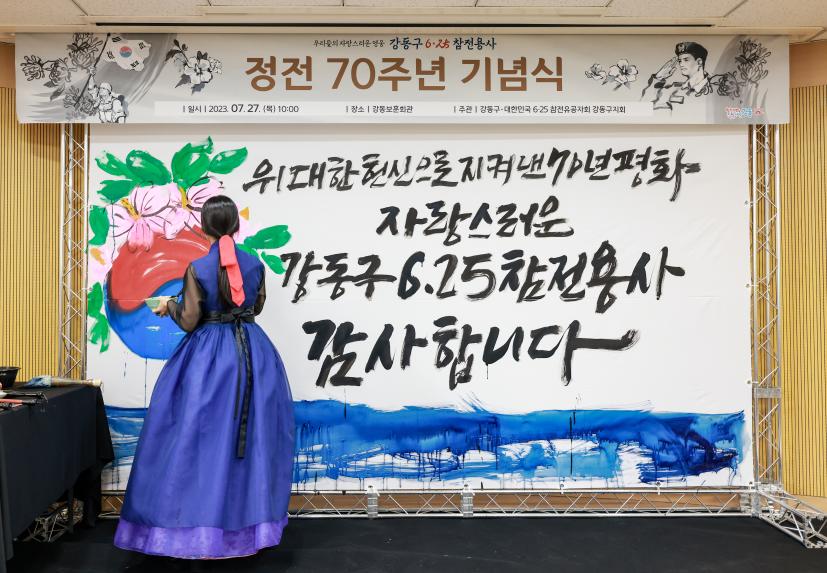 우리들의 자랑스러운 영웅 강동구 6·25 참전용사
정전 70주년 기념식
일시 | 2023. 07. 27. (목) 10:00 | 장소 | 강동보훈회관 | 주관 | 강동구·대한민국 6·25 참전유공자회 강동구지회
위대한 헌신으로 지켜낸 70년 평화
자랑스러운
강동구 6.25 참전용사
감사합니다